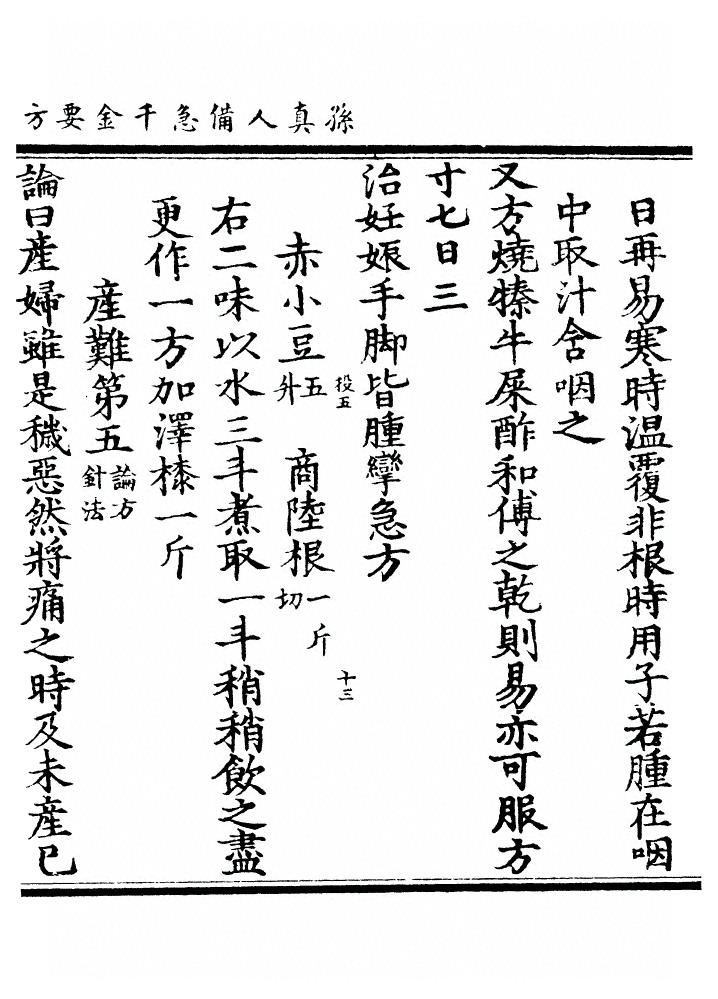 孫真人備急千金要方
日再易寒時温覆非根時用子若腫在咽
中取汁含咽之
又方燒㹀牛屎酢和傅之乾則易亦可服方
寸七日三
治妊娠手脚皆腫攣急方
投五
十三
赤小豆五升 商陸根一斤切
右二味以水三斗煮取一斗稍稍飲之盡
更作一方加澤柒一斤
産難第五論方針法
論曰産婦雖是穢惡然將痛之時及未産已